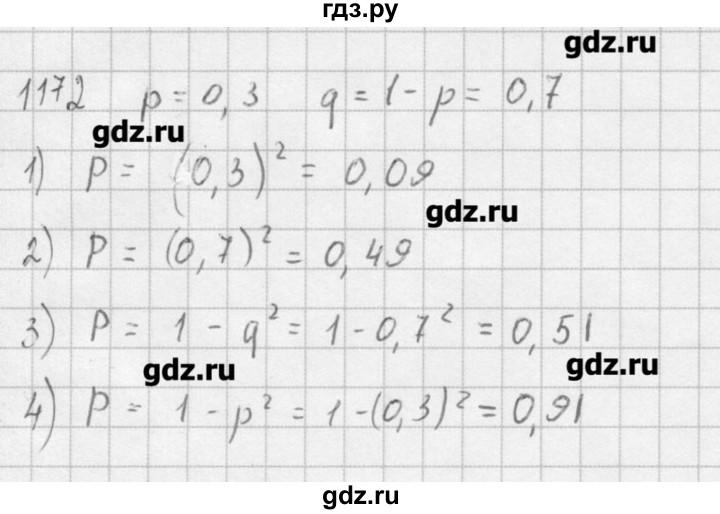 гдз.ру
gdz.ru
1172 p = 0,3 q = 1 - p = 0,7
gdz.ru
1) P = (0,3)² = 0,09
gdz.ru
2) P = (0,7)² = 0,49
3) P = 1 - q² = 1 - 0,7² = 0,51
gdz.ru
gdz.ru
4) P = 1 - p² = 1 - (0,3)² = 0,91
gdz.ru